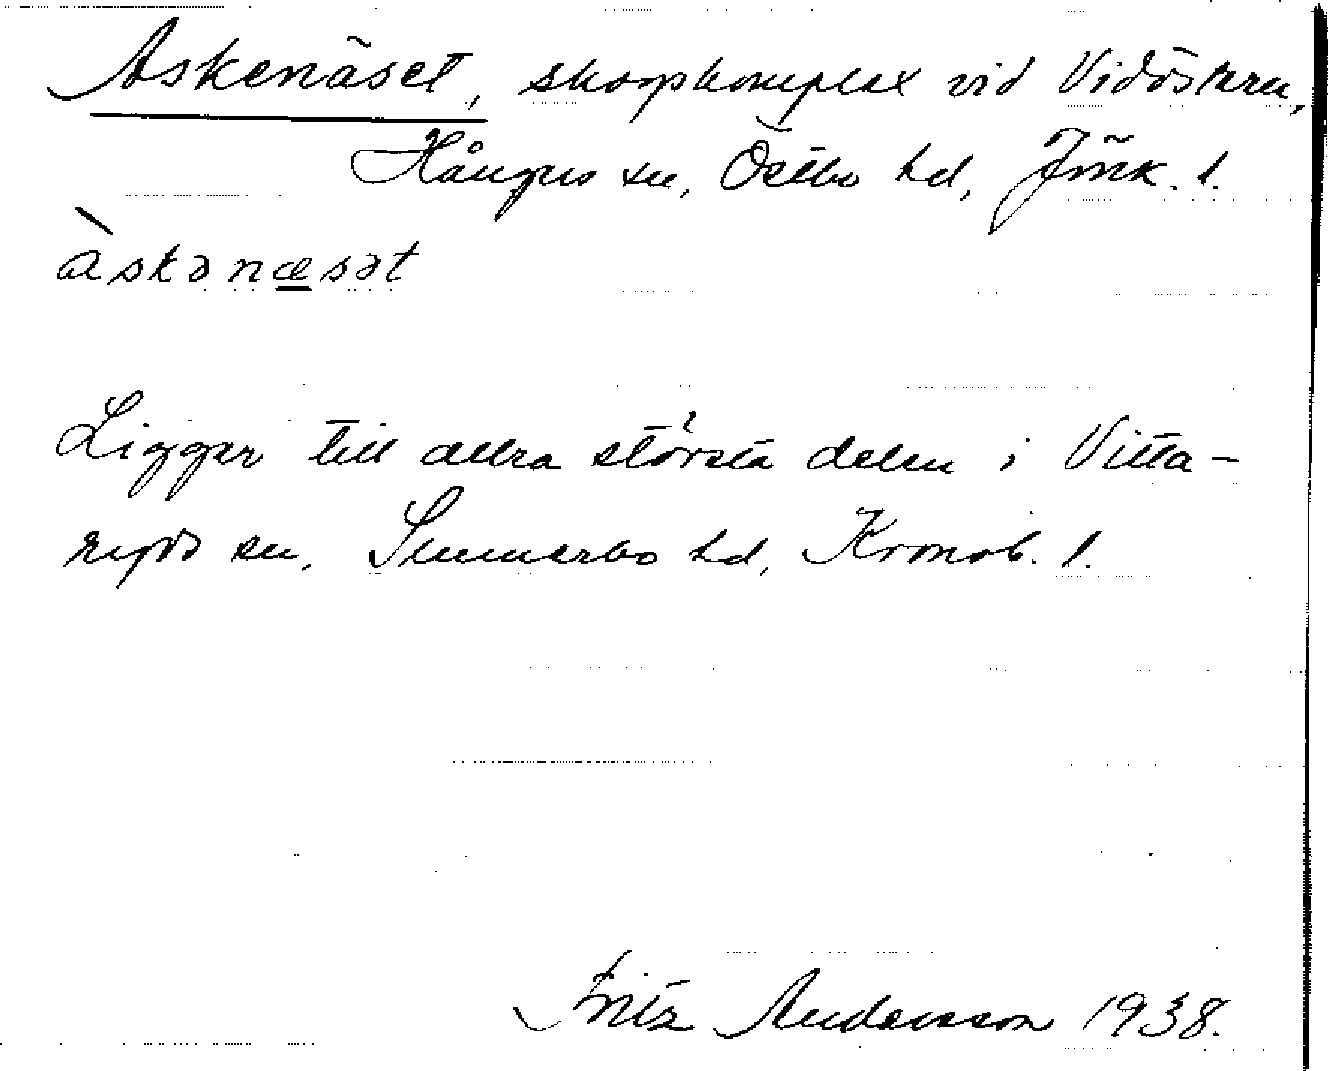 Askenäset, skogskomplex vid Vidöstern,
Hångers sn, Östbo hd, Jönk. l.
àskənæsət
Ligger till allra största delen i Vitta-
ryds sn, Sunnerbo hd, Kronob. l.
Fritz Andersson 1938.